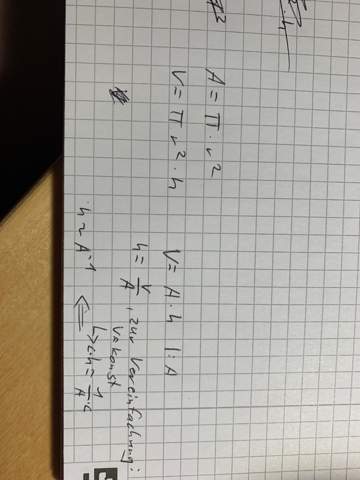 A = π · r²
V = π · r² · h
V = A · h | : A
h = V/A , zur Vereinfachung:
V konst
↳ c·h = 1/A · c
⇐
h ~ A⁻¹